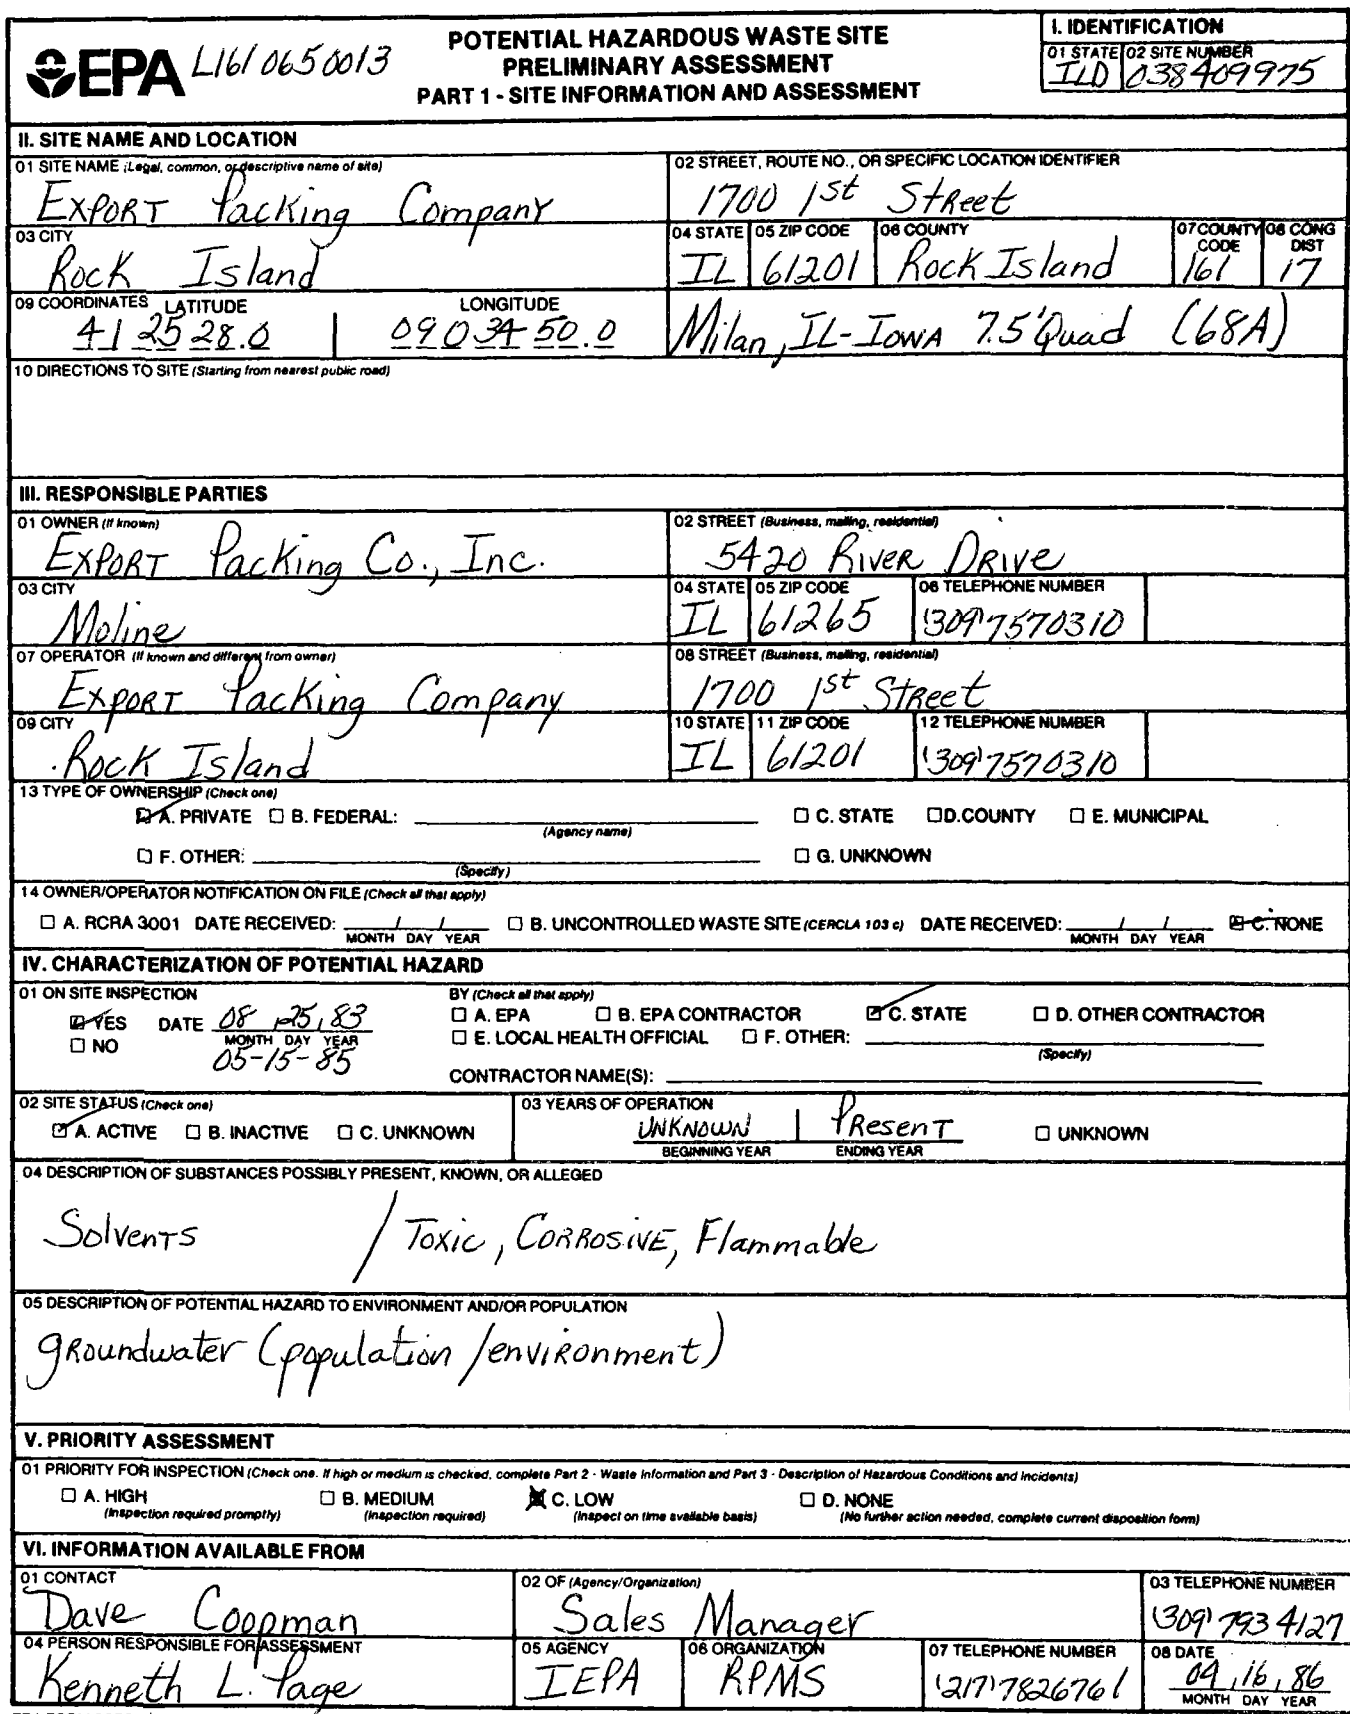 EPA L1610650013
POTENTIAL HAZARDOUS WASTE SITE
PRELIMINARY ASSESSMENT
PART 1 - SITE INFORMATION AND ASSESSMENT
I. IDENTIFICATION
01 STATE 02 SITE NUMBER
ILD 038409975
II. SITE NAME AND LOCATION
01 SITE NAME (Legal, common, or descriptive name of site)
Export Packing Company
02 STREET, ROUTE NO., OR SPECIFIC LOCATION IDENTIFIER
1700 1st Street
03 CITY
Rock Island
04 STATE 05 ZIP CODE 06 COUNTY 07 COUNTY CODE 08 CONG DIST
IL 61201 Rock Island 161 17
09 COORDINATES LATITUDE LONGITUDE
41 25 28.0 090 34 50.0
Milan, IL-Iowa 7.5' Quad (68A)
10 DIRECTIONS TO SITE (Starting from nearest public road)
III. RESPONSIBLE PARTIES
01 OWNER (If known)
Export Packing Co., Inc.
02 STREET (Business, mailing, residential)
5420 River Drive
03 CITY
Moline
04 STATE 05 ZIP CODE 06 TELEPHONE NUMBER
IL 61265 (309) 7570310
07 OPERATOR (If known and different from owner)
Export Packing Company
08 STREET (Business, mailing, residential)
1700 1st Street
09 CITY
Rock Island
10 STATE 11 ZIP CODE 12 TELEPHONE NUMBER
IL 61201 (309) 7570310
13 TYPE OF OWNERSHIP (Check one)
A. PRIVATE B. FEDERAL: C. STATE D. COUNTY E. MUNICIPAL
(Agency name)
F. OTHER: G. UNKNOWN
(Specify)
14 OWNER/OPERATOR NOTIFICATION ON FILE (Check all that apply)
A. RCRA 3001 DATE RECEIVED: / / B. UNCONTROLLED WASTE SITE (CERCLA 103 c) DATE RECEIVED: / / C. NONE
MONTH DAY YEAR MONTH DAY YEAR
IV. CHARACTERIZATION OF POTENTIAL HAZARD
01 ON SITE INSPECTION
YES DATE 08 / 25 / 83
NO MONTH DAY YEAR
05-15-85
BY (Check all that apply)
A. EPA B. EPA CONTRACTOR C. STATE D. OTHER CONTRACTOR
E. LOCAL HEALTH OFFICIAL F. OTHER:
(Specify)
CONTRACTOR NAME(S):
02 SITE STATUS (Check one)
A. ACTIVE B. INACTIVE C. UNKNOWN
03 YEARS OF OPERATION
Unknown | Present UNKNOWN
BEGINNING YEAR ENDING YEAR
04 DESCRIPTION OF SUBSTANCES POSSIBLY PRESENT, KNOWN, OR ALLEGED
Solvents / Toxic, Corrosive, Flammable
05 DESCRIPTION OF POTENTIAL HAZARD TO ENVIRONMENT AND/OR POPULATION
groundwater (population/environment)
V. PRIORITY ASSESSMENT
01 PRIORITY FOR INSPECTION (Check one. If high or medium is checked, complete Part 2 - Waste Information and Part 3 - Description of Hazardous Conditions and Incidents)
A. HIGH B. MEDIUM C. LOW D. NONE
(Inspection required promptly) (Inspection required) (Inspect on time available basis) (No further action needed, complete current disposition form)
VI. INFORMATION AVAILABLE FROM
01 CONTACT
Dave Coopman
02 OF (Agency/Organization)
Sales Manager
03 TELEPHONE NUMBER
(309) 793 4127
04 PERSON RESPONSIBLE FOR ASSESSMENT
Kenneth L. Page
05 AGENCY
IEPA
06 ORGANIZATION
RPMS
07 TELEPHONE NUMBER
(217) 7826761
08 DATE
04 / 16 / 86
MONTH DAY YEAR